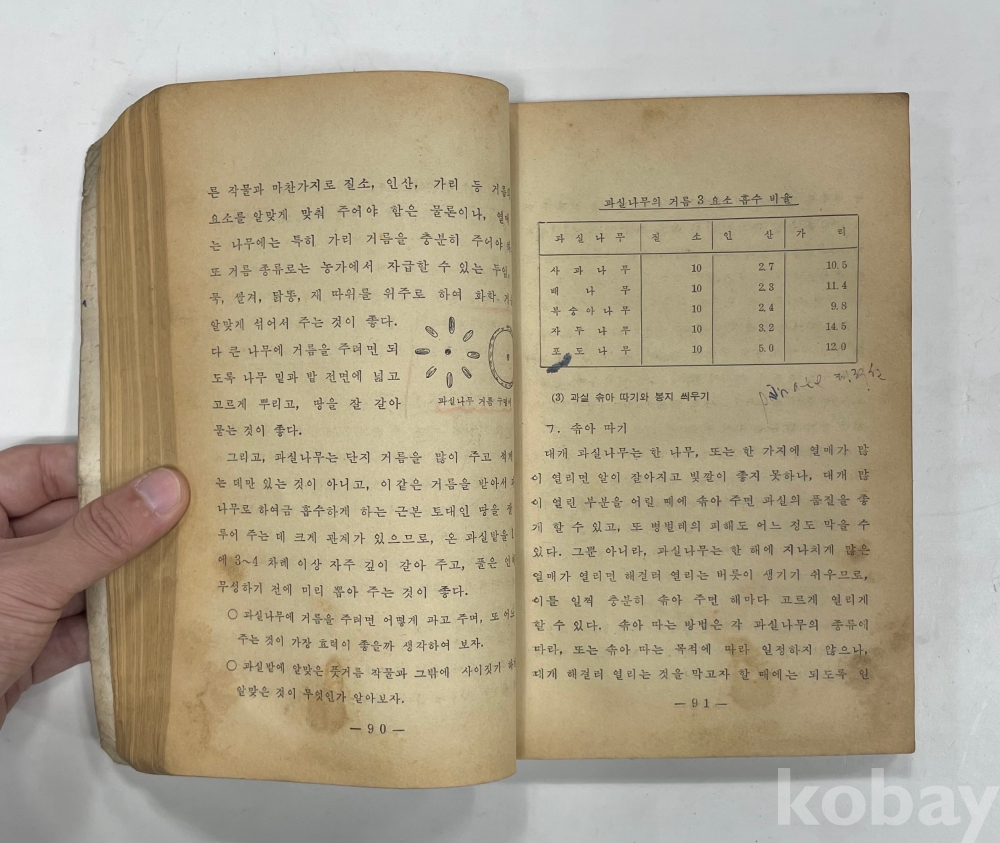 른 작물과 마찬가지로 질소, 인산, 가리 등 거름
요소를 알맞게 맞춰 주어야 함은 물론이나, 열매
는 나무에는 특히 가리 거름을 충분히 주어야
또 거름 종류로는 농가에서 자급할 수 있는 두엄,
쌀겨, 닭똥, 재 따위를 위주로 하여 화학
알맞게 섞어서 주는 것이 좋다.
다 큰 나무에 거름을 주려면 되
도록 나무 밑과 밭 전면에 넓고
고르게 뿌리고, 땅을 잘 갈아
묻는 것이 좋다.
과실나무 거름
그리고, 과실나무는 단지 거름을 많이 주고
는 데만 있는 것이 아니고, 이같은 거름을 받아서
나무로 하여금 흡수하게 하는 근본 토대인 땅을
루어 주는 데 크게 관계가 있으므로, 온 과실밭을
에 3~4 차례 이상 자주 깊이 갈아 주고, 풀은
무성하기 전에 미리 뽑아 주는 것이 좋다.
○ 과실나무에 거름을 주려면 어떻게 파고 주며, 또
주는 것이 가장 효력이 좋을까 생각하여 보자.
○ 과실밭에 알맞은 풋거름 작물과 그밖에 사이짓기
알맞은 것이 무엇인가 알아보자.
— 90 —
과실나무의 거름 3 요소 흡수 비율
과실나무 질소 인산 가리
사과나무 10 2.7 10.5
배나무 10 2.3 11.4
복숭아나무 10 2.4 9.8
자두나무 10 3.2 14.5
포도나무 10 5.0 12.0
(3) 과실 솎아 따기와 봉지 씌우기
ㄱ. 솎아 따기
대개 과실나무는 한 나무, 또는 한 가지에 열매가 많
이 열리면 알이 잘아지고 빛깔이 좋지 못하나, 대개 많
이 열린 부분을 어릴 때에 솎아 주면 과실의 품질을 좋
게 할 수 있고, 또 병벌레의 피해도 어느 정도 막을 수
있다. 그뿐 아니라, 과실나무는 한 해에 지나치게 많은
열매가 열리면 해걸터 열리는 버릇이 생기기 쉬우므로,
이를 일찍 충분히 솎아 주면 해마다 고르게 열리게
할 수 있다. 솎아 따는 방법은 각 과실나무의 종류에
따라, 또는 솎아 따는 목적에 따라 일정하지 않으나,
대개 해걸터 열리는 것을 막고자 할 때에는 되도록 일
— 91 —
kobay